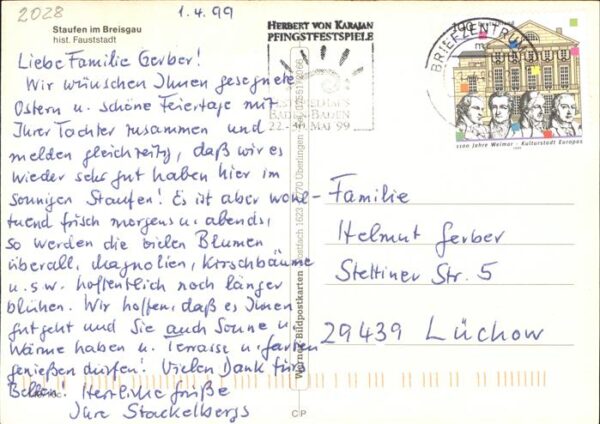 2028
1.4.99
Staufen im Breisgau
hist. Fauststadt
Liebe Familie Gerber!
Wir wünschen Ihnen gesegnete
Ostern u. schöne Feiertage mit
Ihrer Tochter zusammen und
melden gleichzeitig, daß wir es
wieder sehr gut haben hier im
sonnigen Staufen! Es ist aber wohl-
tuend frisch morgens u. abends,
so werden die vielen Blumen
überall, Magnolien, Kirschbäume
u.s.w. hoffentlich noch länger
blühen. Wir hoffen, daß es Ihnen
gut geht und Sie auch Sonne u.
Wärme haben u. Terrasse u. Garten
genießen dürfen! Vielen Dank fürs
Herzliche Grüße
Ihre Stackelbergs
HERBERT VON KARAJAN
PFINGSTFESTSPIELE
FESTSPIELHAUS
BADEN-BADEN
22.-30. MAI 99
BRIEFZENTRUM
1100 Jahre Weimar - Kulturstadt Europas
Bildpostkarten Postfach 1623 Überlingen
CP
Familie
Helmut Gerber
Stettiner Str. 5
29439 Lüchow